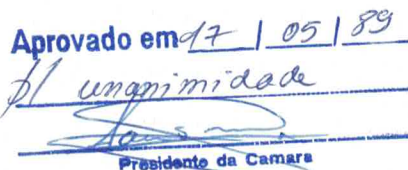 Aprovado em 17 / 05 / 89
p/ unanimidade
Presidente da Camara